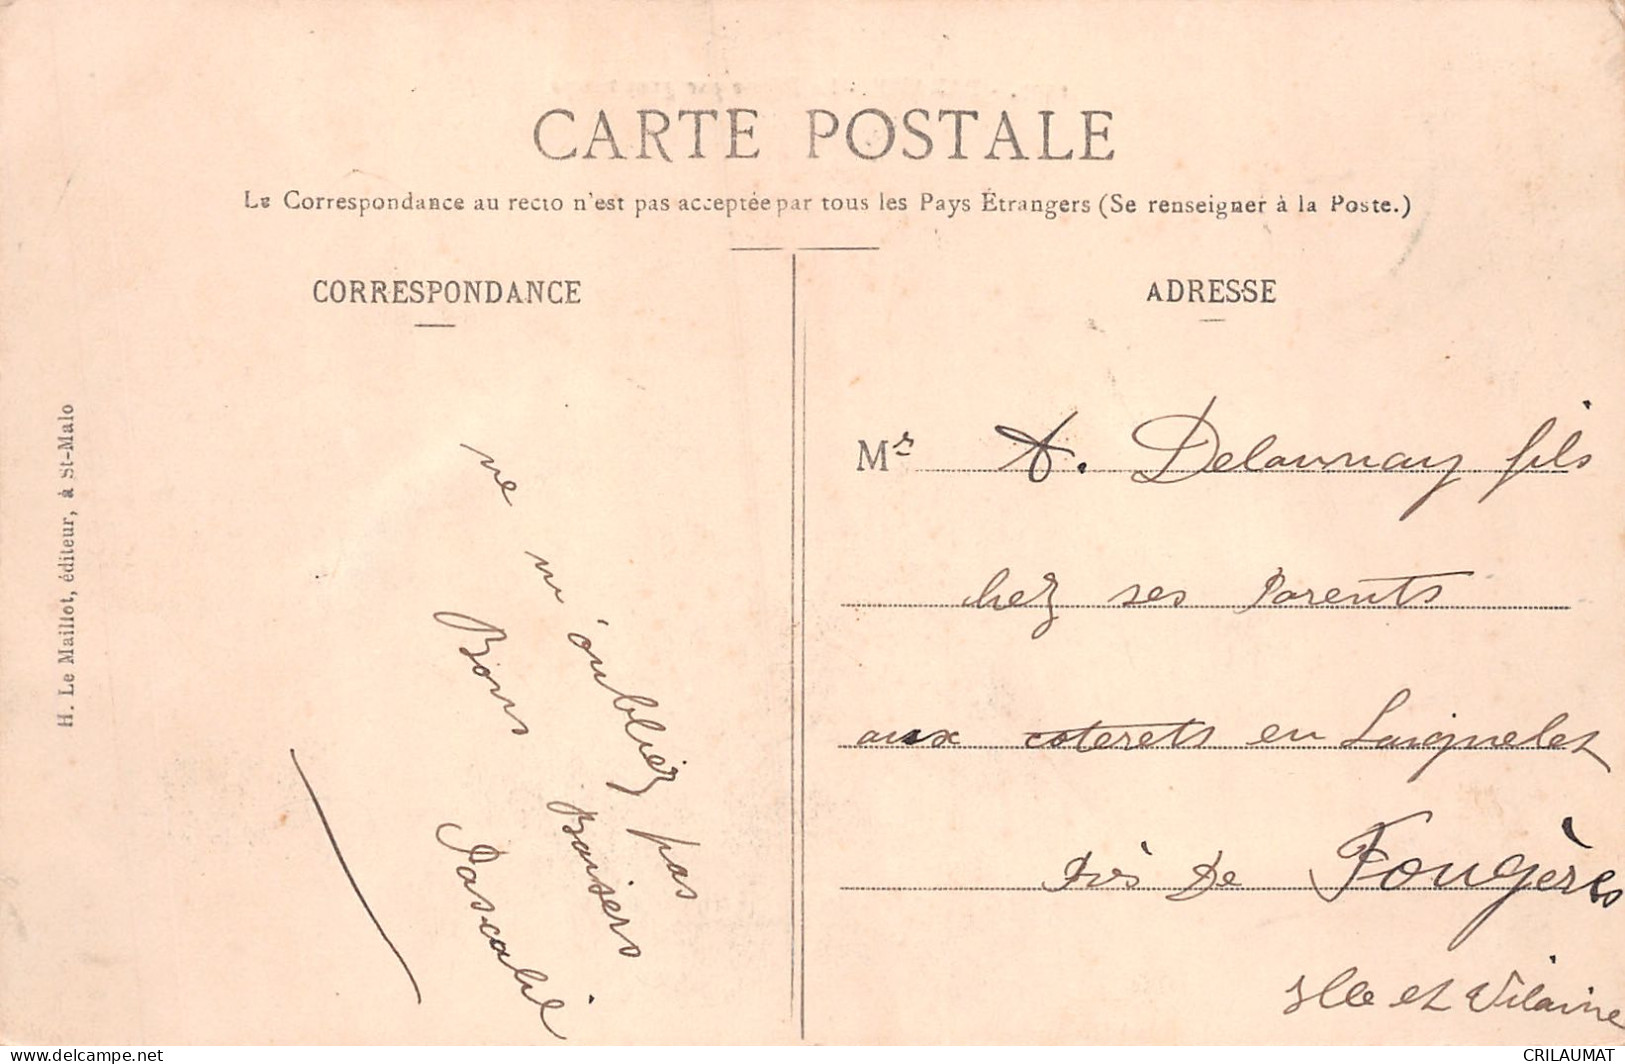 CARTE POSTALE
Le Correspondance au recto n'est pas acceptée par tous les Pays Étrangers (Se renseigner à la Poste.)
CORRESPONDANCE
ne m'oubliez pas
Bons Baisers
Pascalie
H. Le Maillot, éditeur, à St-Malo
ADRESSE
Mr A. Delaunay fils
chez ses Parents
aux coterets en Laignelet
Près De Fougères
Ille et Vilaine
CRILAUMAT